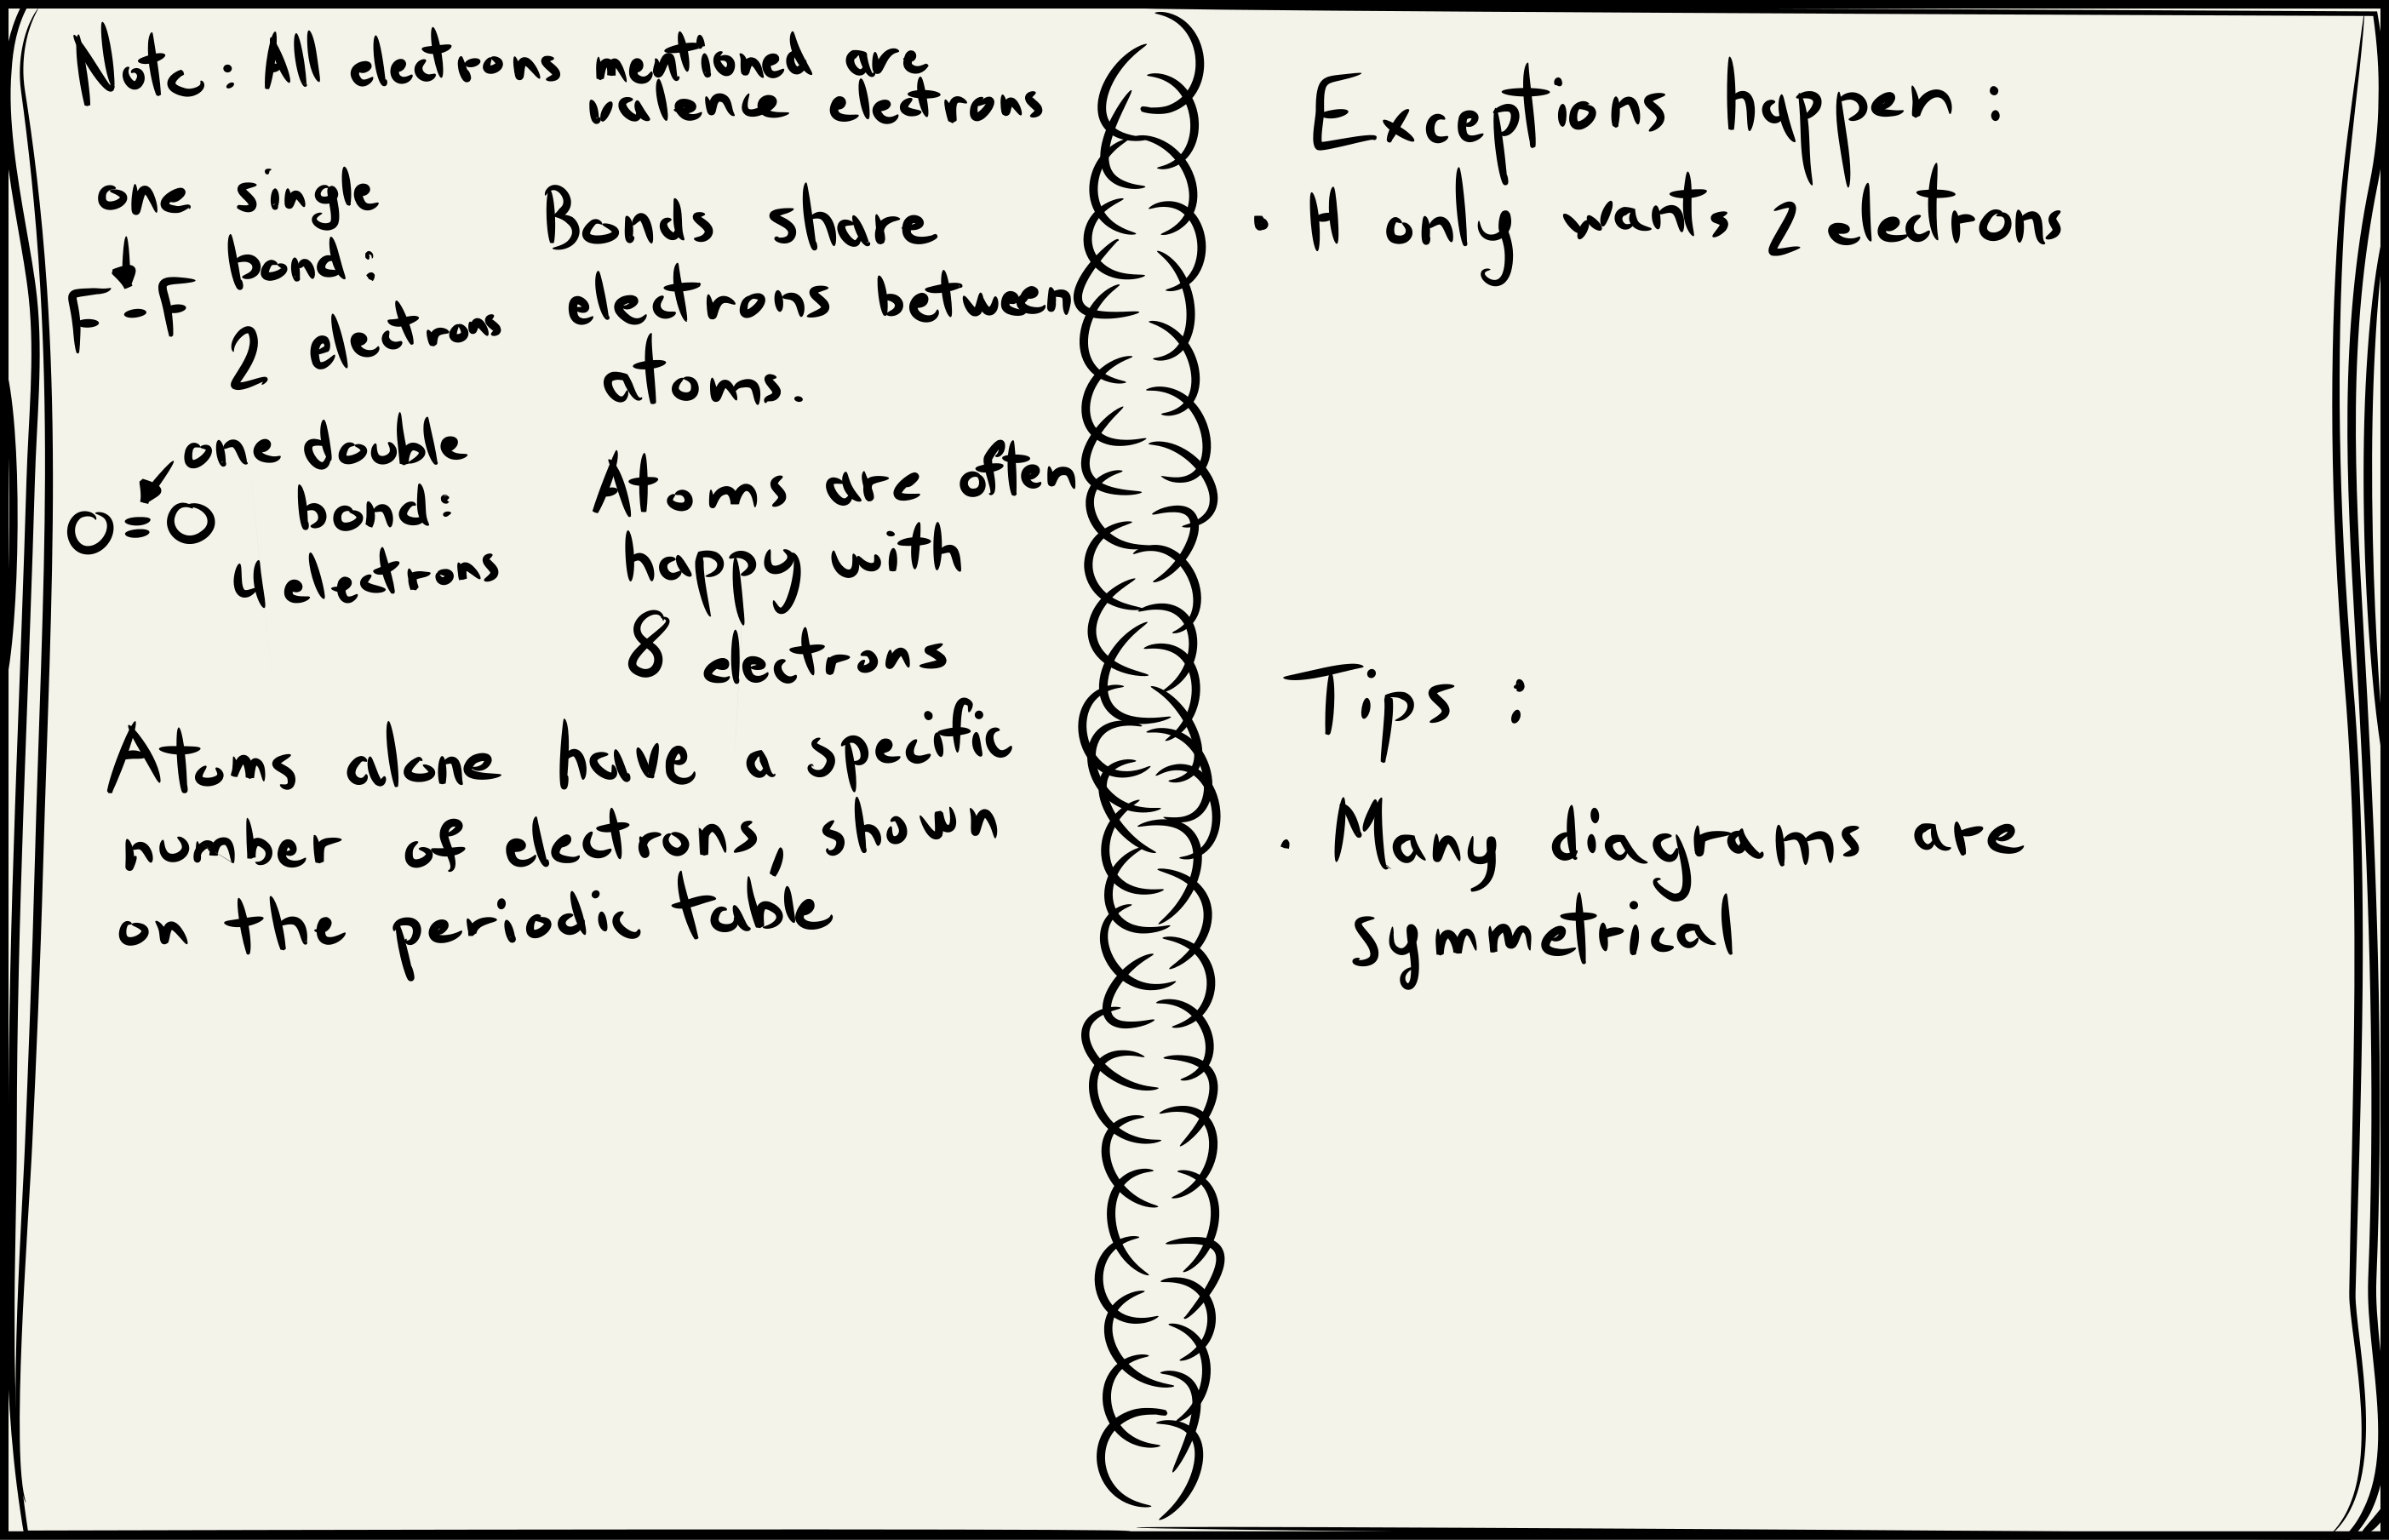 Note: All electrons mentioned are
valence electrons
one single
bond:
F-F
2 electrons
Bonds share
electrons between
atoms.
one double
bond:
O=O
4 electrons
Atoms are often
happy with
8 electrons
Atoms alone have a specific
number of electrons, shown
on the periodic table
Exceptions happen:
· H only wants 2 electrons
Tips:
· Many diagrams are
symmetrical